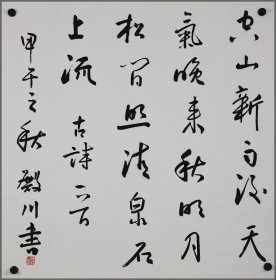 空山新雨後天
氣晚来秋明月
松間照清泉石
上流 古詩一首
甲午之秋 殿川書